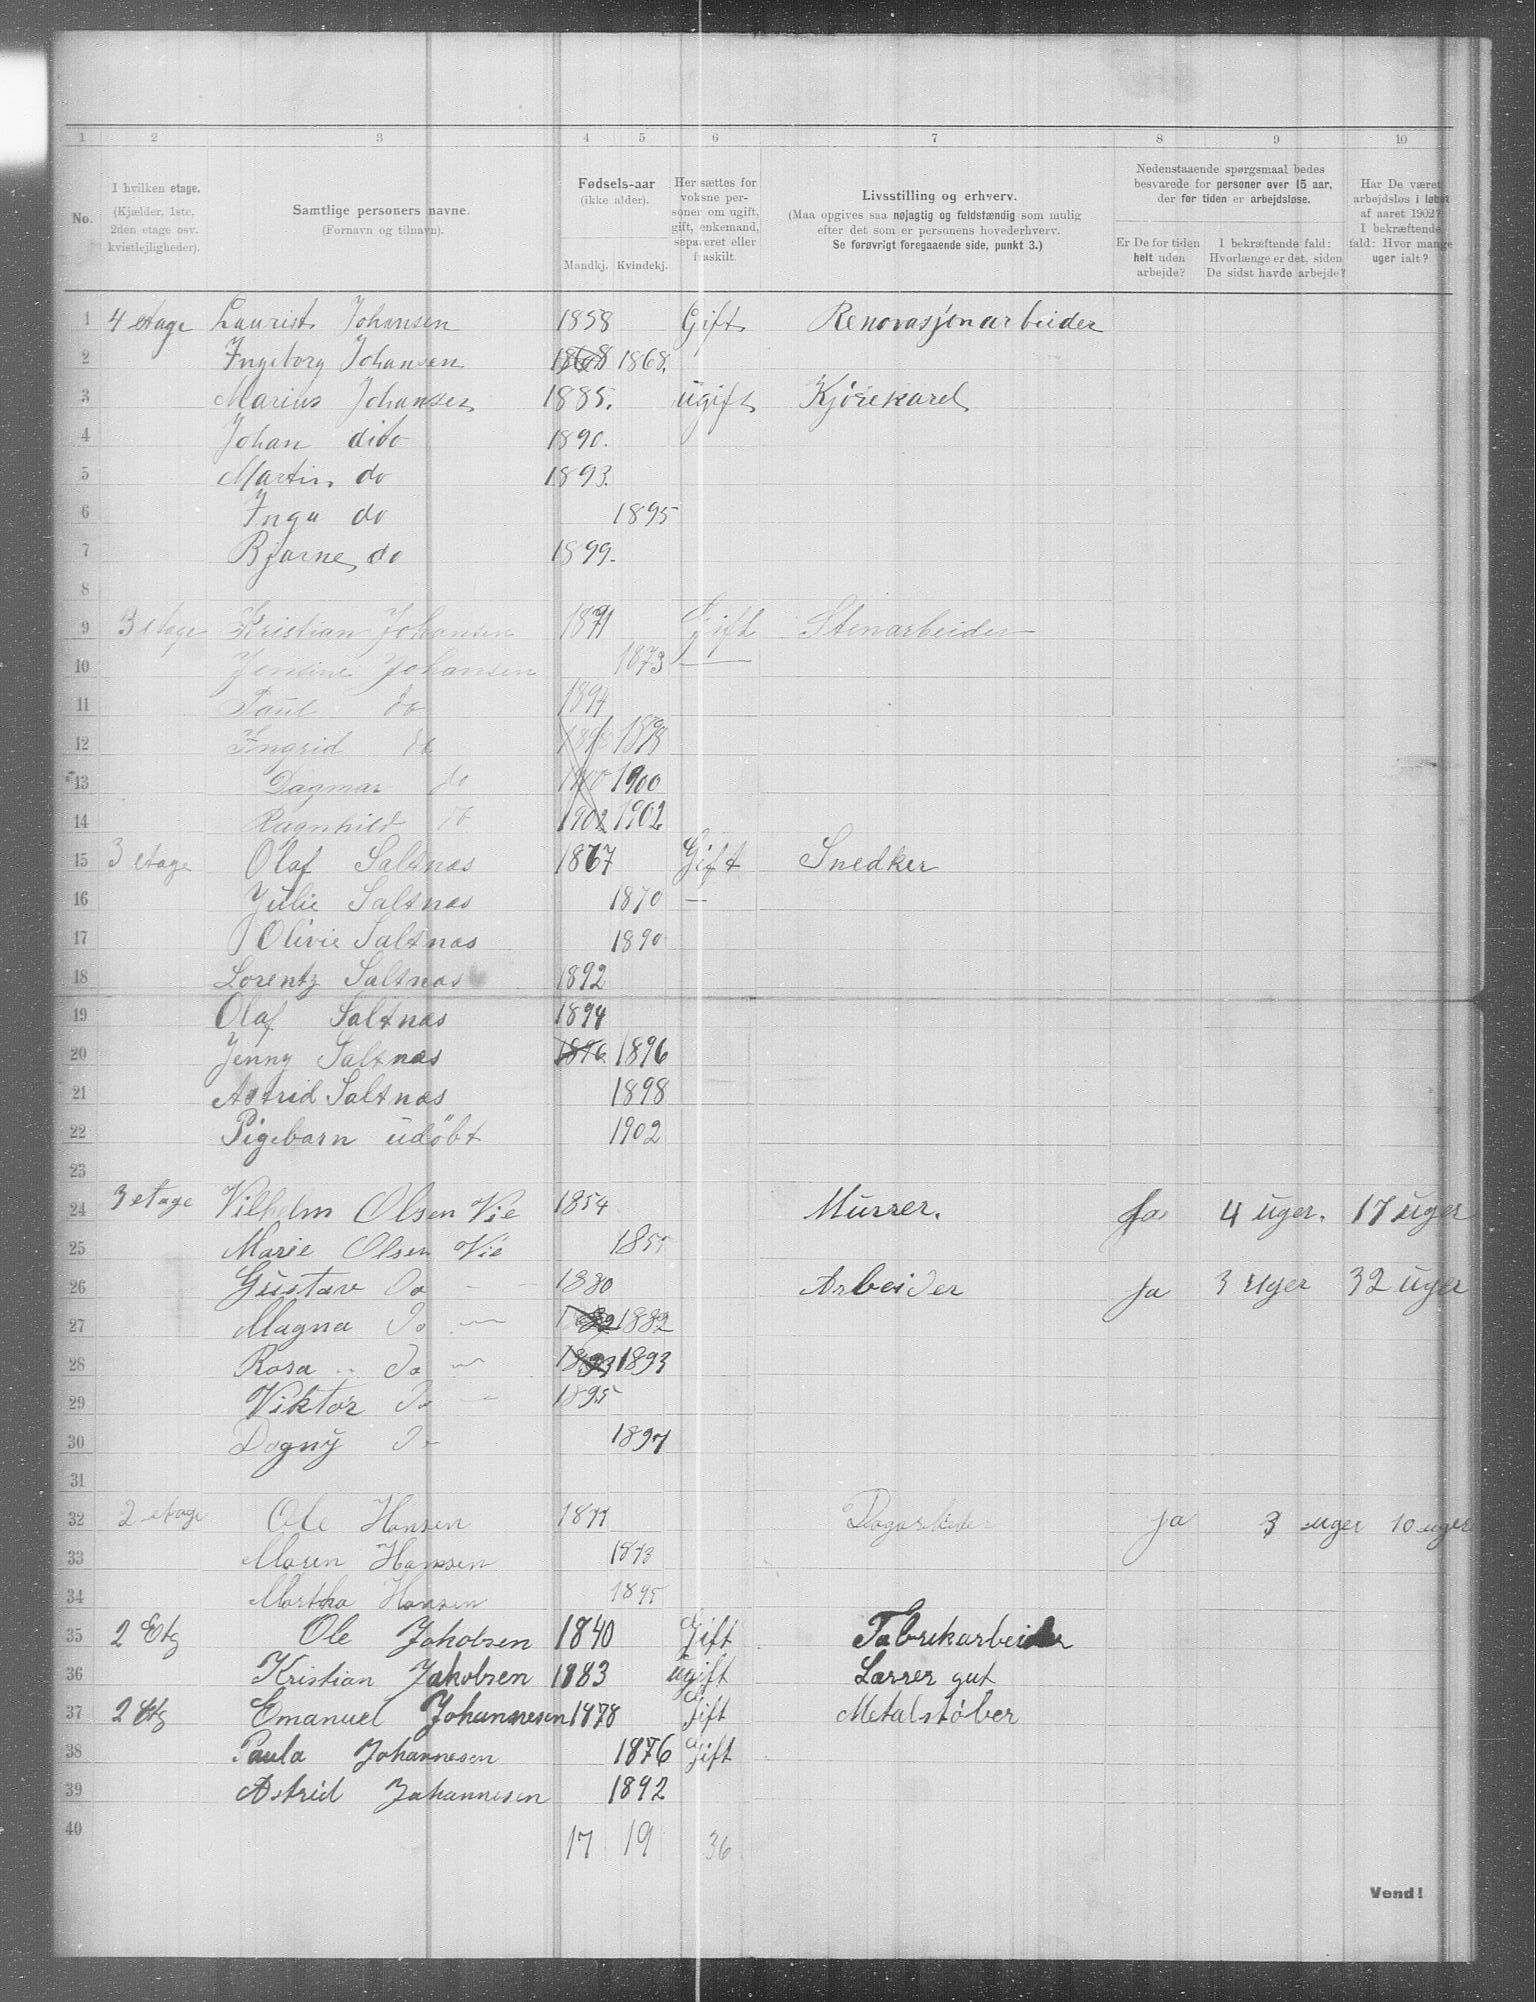 1 2 3 4 5 6 7 8 9 10
No.
I hvilken etage. (Kjælder, 1ste, 2den etage osv. kvistlejligheder).
Samtlige personers navne. (Fornavn og tilnavn).
Fødsels-aar (ikke alder).
Mandkj. Kvindekj.
Her sættes for voksne personer om ugift, gift, enkemand, separeret eller fraskilt.
Livsstilling og erhverv.
(Maa opgives saa nøjagtig og fuldstændig som mulig efter det som er personens hovederhverv.
Se forøvrigt foregaaende side, punkt 3.)
Nedenstaaende spørgsmaal bedes besvarede for personer over 15 aar, der for tiden er arbejdsløse.
Er De for tiden helt uden arbejde?
I bekræftende fald: Hvorlænge er det, siden De sidst havde arbejde?
Har De været arbejdsløs i løbet af aaret 1902? I bekræftende fald: Hvor mange uger ialt?
1 4 etage Laurits Johansen 1858 Gift Renovasjonarbeider
2 Ingeborg Johansen 1868 1868.
3 Marius Johansen 1885. ugift Kjörekarel
4 Johan dito 1890.
5 Martin do 1893.
6 Inga do 1895
7 Bjarne do 1899.
8
9 3 etage Kristian Johansen 1871 Gift Stenarbeider
10 Jensine Johansen 1873 —
11 Paul do 1894
12 Ingrid do 1898 1898
13 Dagmar do 1900 1900
14 Ragnhild do 1902 1902
15 3 etage Olaf Saltnas 1867 Gift Snedker
16 Julie Saltnas 1870 —
17 Olivie Saltnas 1890
18 Lorentz Saltnas 1892
19 Olaf Saltnas 1894
20 Jenny Saltnas 1896 1896
21 Astrid Saltnas 1898
22 Pigebarn udöbt 1902
23
24 3 etage Vilhelm Olsen Vie 1854 Murrer. Ja 4 uger. 17 uger
25 Marie Olsen Vie
26 Gustav Do - - 1880 Arbeider Ja 3 uger 32 uger
27 Magna Do 1882 1882
28 Rosa Do 1893 1893
29 Viktor Do 1895
30 Dagny Do 1897
31
32 2 etage Ole Hansen Dagarbeider ja 3 uger 10 uger
33 Maren Hansen 1873
34 Martha Hansen 1895
35 2 Etg Ole Jakobsen 1840 Gift Fabrikarbeider
36 Kristian Jakobsen 1883 ugift Larrer gut
37 2 Etg Emanuel Johannesen 1878 Gift Metalstøber
38 Paula Johannesen 1876 Gift
39 Astrid Johannesen 1892
40 17 19 36
Vend!